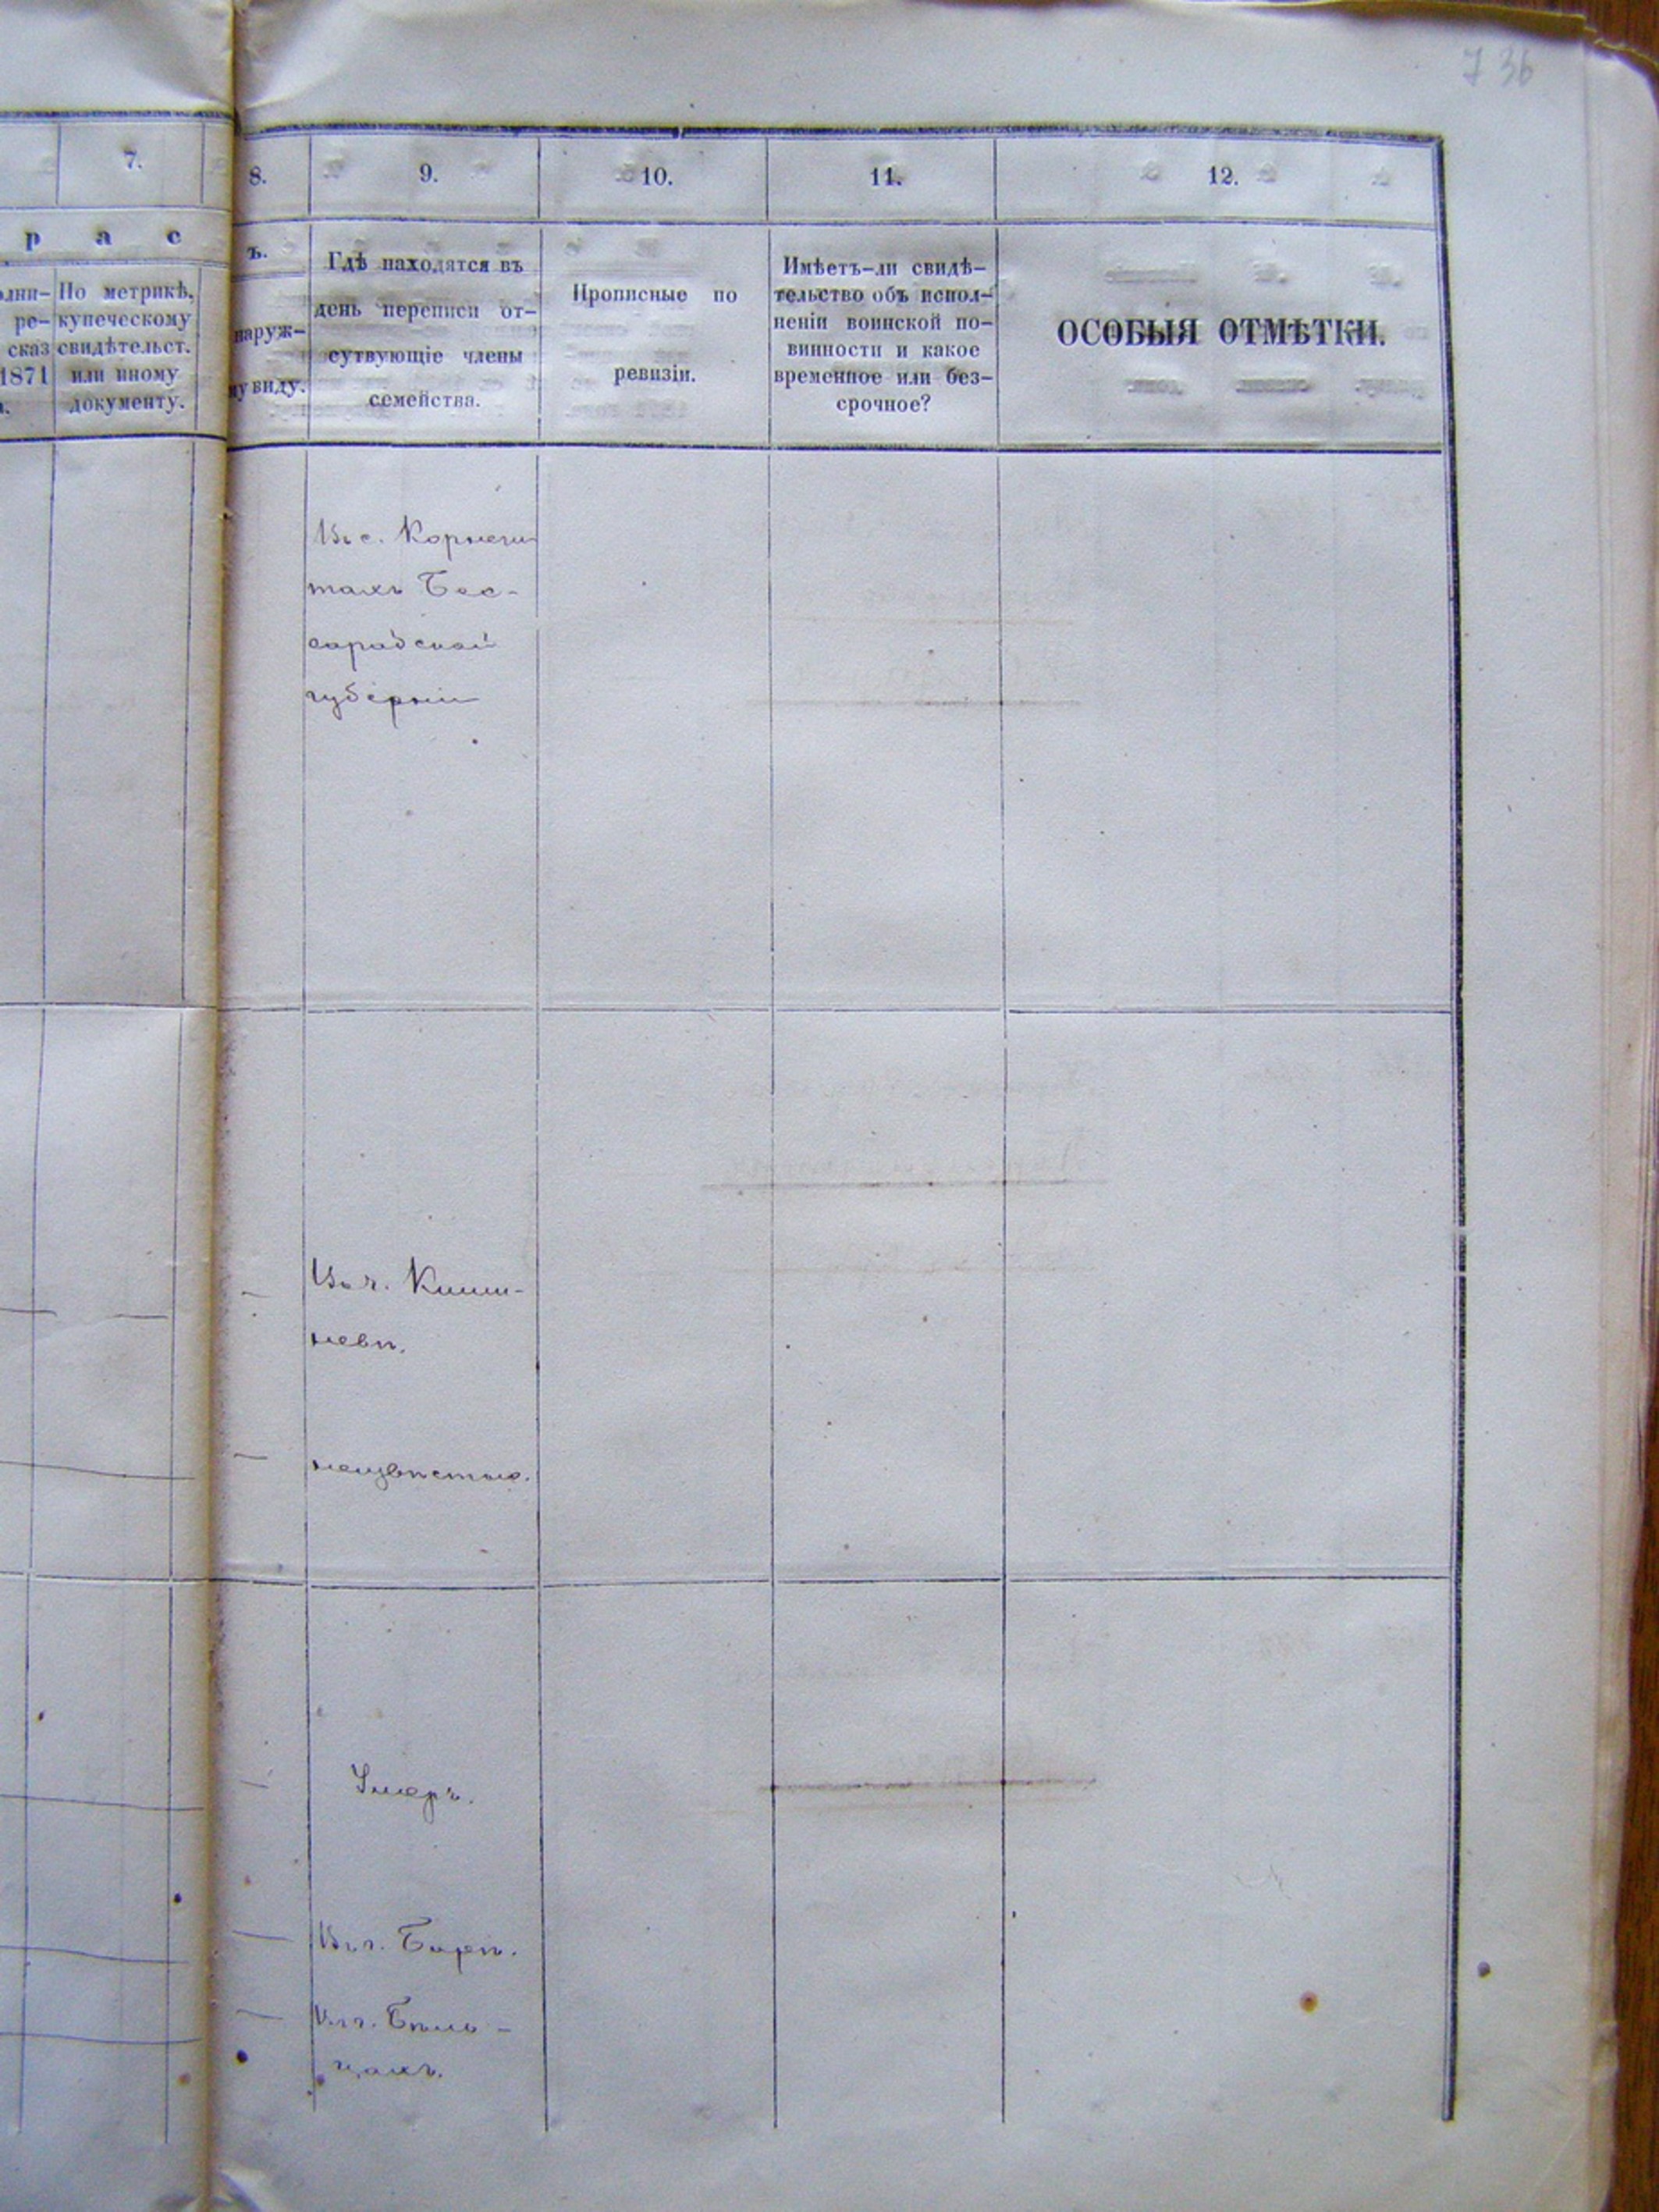 7 36
7.
8.
9.
10.
11.
12.
р а с
ъ.
олни-
ре-
сказ
1871
По метрикѣ,
купеческому
свидѣтельст.
или иному
документу.
наруж-
му виду.
Гдѣ находятся въ
день переписи от-
сутвующіе члены
семейства.
Прописные по
ревизіи.
Имѣетъ-ли свидѣ-
тельство объ испол-
неніи воинской по-
винности и какое
временное или без-
срочное?
ОСОБЫЯ ОТМѢТКИ.
Въ с. Корнеш
тахъ Бес-
сарабской
губерніи
Въ г. Киши-
невѣ.
неизвѣстно.
Умеръ.
Въ г.
Въ г. Бѣль-
цахъ.